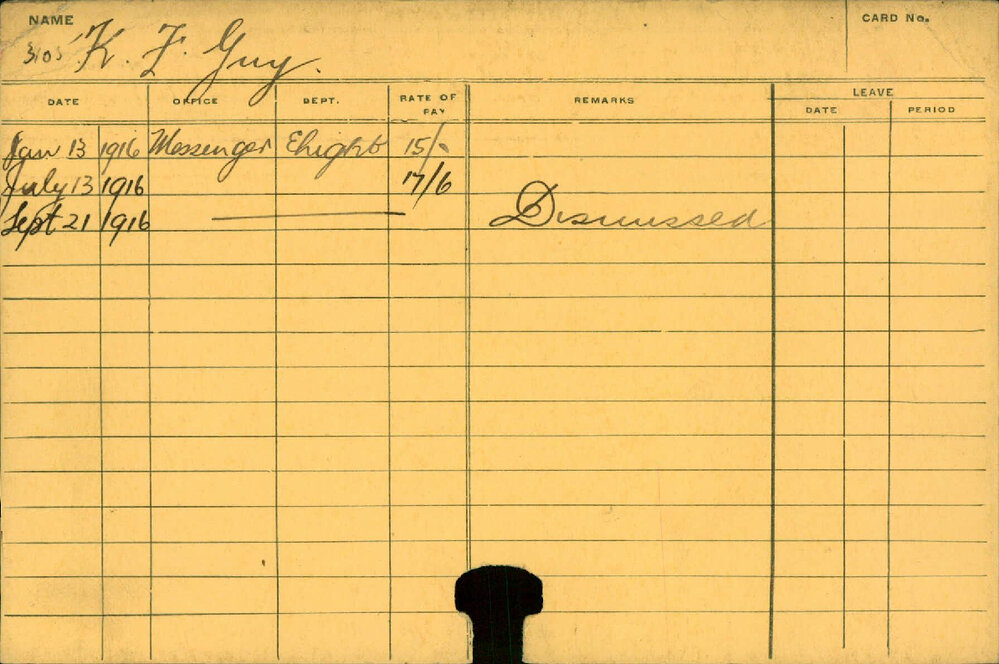 NAME
CARD No.
3105 K. F. Guy.
LEAVE
DATE OFFICE DEPT. RATE OF PAY REMARKS DATE PERIOD
Jan 13 1916 Messenger 15/-
July 13 1916 17/6
Sept 21 1916 Dismissed